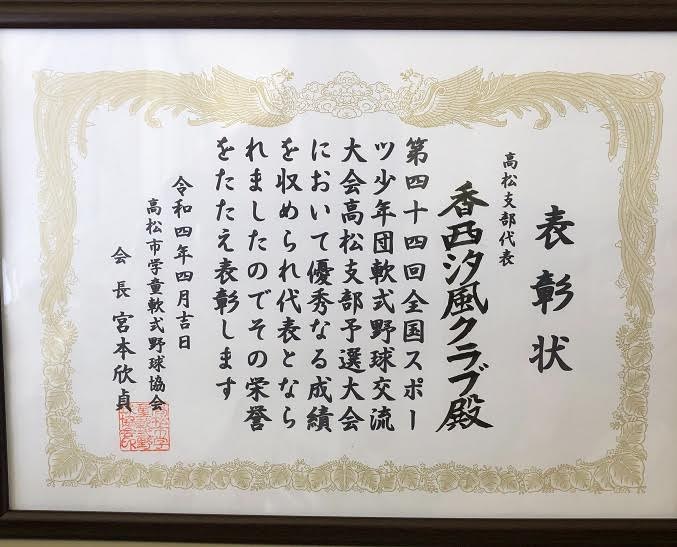 表彰状
高松支部代表
香西汐風クラブ殿
第四十四回全国スポー
ツ少年団軟式野球交流
大会高松支部予選大会
において優秀なる成績
を収められ代表となら
れましたのでその栄誉
をたたえ表彰します
令和四年四月吉日
高松市学童軟式野球協会
会長宮本欣貞